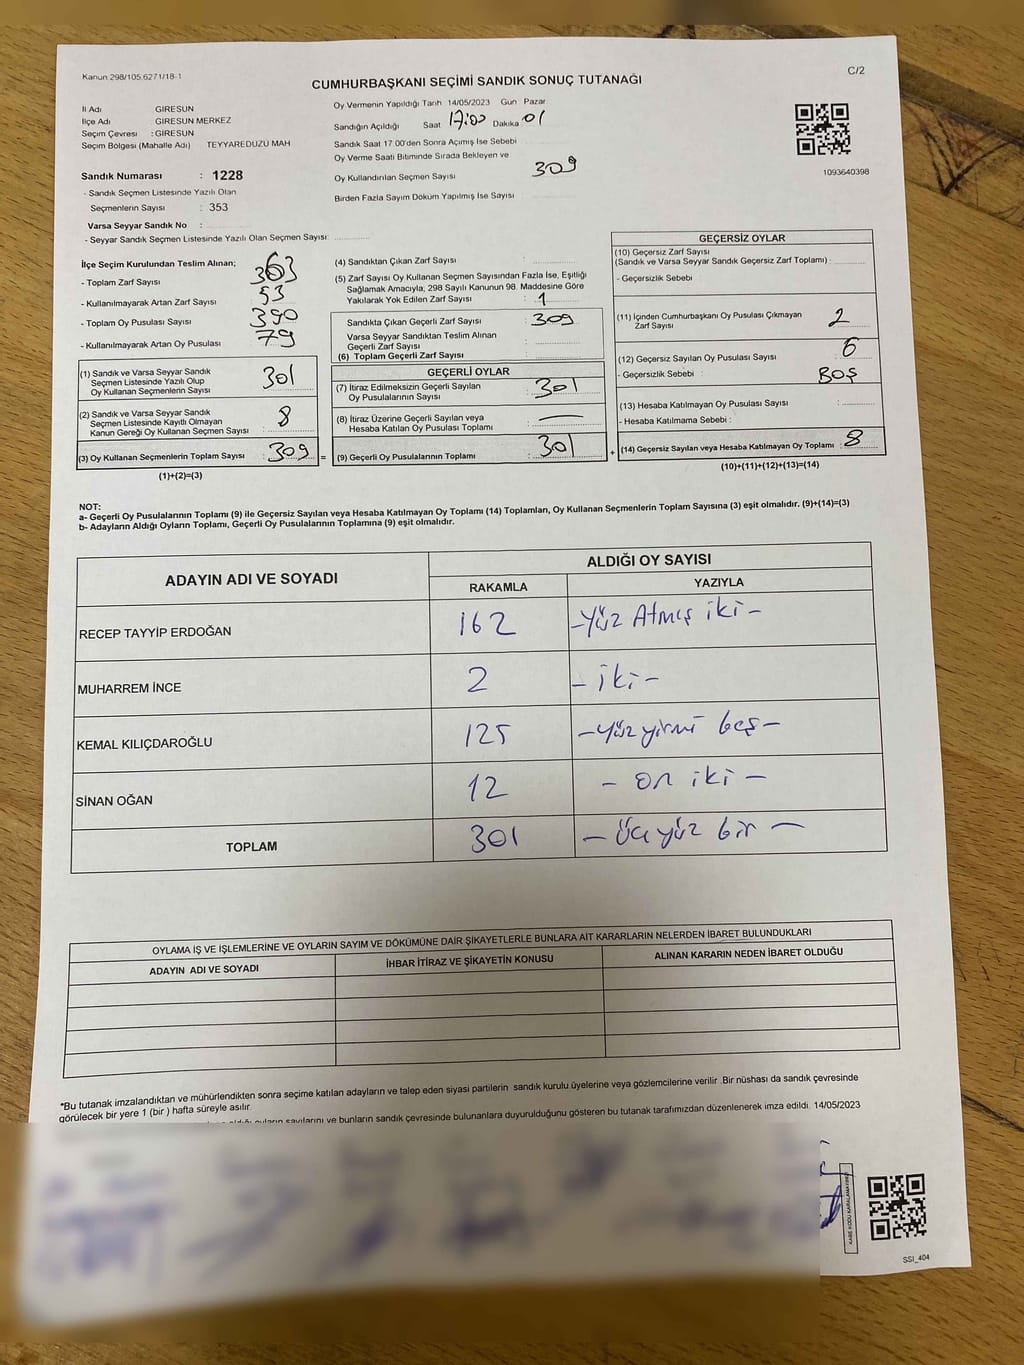 Kanun 298/105.6271/18-1
C/2
CUMHURBAŞKANI SEÇİMİ SANDIK SONUÇ TUTANAĞI
İl Adı GİRESUN
İlçe Adı GİRESUN MERKEZ
Seçim Çevresi : GİRESUN
Seçim Bölgesi (Mahalle Adı) TEYYAREDÜZÜ MAH
Sandık Numarası : 1228
- Sandık Seçmen Listesinde Yazılı Olan
Seçmenlerin Sayısı : 353
Varsa Seyyar Sandık No :
- Seyyar Sandık Seçmen Listesinde Yazılı Olan Seçmen Sayısı:
Oy Vermenin Yapıldığı Tarih 14/05/2023 Gün : Pazar
Sandığın Açıldığı Saat 17:00 Dakika 01
Sandık Saat 17 00'den Sonra Açımış İse Sebebi
Oy Verme Saati Bitiminde Sırada Bekleyen ve
Oy Kullandırılan Seçmen Sayısı 309
Birden Fazla Sayım Döküm Yapılmış İse Sayısı
1093640398
İlçe Seçim Kurulundan Teslim Alınan;
- Toplam Zarf Sayısı 363
- Kullanılmayarak Artan Zarf Sayısı 53
- Toplam Oy Pusulası Sayısı
- Kullanılmayarak Artan Oy Pusulası 79
(1) Sandık ve Varsa Seyyar Sandık
Seçmen Listesinde Yazılı Olup
Oy Kullanan Seçmenlerin Sayısı 301
(2) Sandık ve Varsa Seyyar Sandık
Seçmen Listesinde Kayıtlı Olmayan
Kanun Gereği Oy Kullanan Seçmen Sayısı : 8
(3) Oy Kullanan Seçmenlerin Toplam Sayısı : 309 =
(1)+(2)=(3)
(4) Sandıktan Çıkan Zarf Sayısı :
(5) Zarf Sayısı Oy Kullanan Seçmen Sayısından Fazla İse, Eşitliği
Sağlamak Amacıyla; 298 Sayılı Kanunun 98. Maddesine Göre
Yakılarak Yok Edilen Zarf Sayısı : 1
Sandıkta Çıkan Geçerli Zarf Sayısı : 309
Varsa Seyyar Sandıktan Teslim Alınan
Geçerli Zarf Sayısı :
(6) Toplam Geçerli Zarf Sayısı :
GEÇERLİ OYLAR
(7) İtiraz Edilmeksizin Geçerli Sayılan
Oy Pusulalarının Sayısı : 301
(8) İtiraz Üzerine Geçerli Sayılan veya
Hesaba Katılan Oy Pusulası Toplamı : —
(9) Geçerli Oy Pusulalarının Toplamı : 301 +
GEÇERSİZ OYLAR
(10) Geçersiz Zarf Sayısı
(Sandık ve Varsa Seyyar Sandık Geçersiz Zarf Toplamı) :
- Geçersizlik Sebebi :
(11) İçinden Cumhurbaşkanı Oy Pusulası Çıkmayan
Zarf Sayısı : 2
(12) Geçersiz Sayılan Oy Pusulası Sayısı : 6
- Geçersizlik Sebebi : BOŞ
(13) Hesaba Katılmayan Oy Pusulası Sayısı :
- Hesaba Katılmama Sebebi :
(14) Geçersiz Sayılan veya Hesaba Katılmayan Oy Toplamı : 8
(10)+(11)+(12)+(13)=(14)
NOT:
a- Geçerli Oy Pusulalarının Toplamı (9) ile Geçersiz Sayılan veya Hesaba Katılmayan Oy Toplamı (14) Toplamları, Oy Kullanan Seçmenlerin Toplam Sayısına (3) eşit olmalıdır. (9)+(14)=(3)
b- Adayların Aldığı Oyların Toplamı, Geçerli Oy Pusulalarının Toplamına (9) eşit olmalıdır.
ADAYIN ADI VE SOYADI
ALDIĞI OY SAYISI
RAKAMLA YAZIYLA
RECEP TAYYİP ERDOĞAN 162 -Yüz Atmış iki-
MUHARREM İNCE 2 -iki-
KEMAL KILIÇDAROĞLU 125 -Yüz yirmi beş-
SİNAN OĞAN 12 - on iki -
TOPLAM 301 - üç yüz bir -
OYLAMA İŞ VE İŞLEMLERİNE VE OYLARIN SAYIM VE DÖKÜMÜNE DAİR ŞİKAYETLERLE BUNLARA AİT KARARLARIN NELERDEN İBARET BULUNDUKLARI
ADAYIN ADI VE SOYADI İHBAR İTİRAZ VE ŞİKAYETİN KONUSU ALINAN KARARIN NEDEN İBARET OLDUĞU
*Bu tutanak imzalandıktan ve mühürlendikten sonra seçime katılan adayların ve talep eden siyasi partilerin sandık kurulu üyelerine veya gözlemcilerine verilir .Bir nüshası da sandık çevresinde
görülecek bir yere 1 (bir ) hafta süreyle asılır.
oyların sayılarını ve bunların sandık çevresinde bulunanlara duyurulduğunu gösteren bu tutanak tarafımızdan düzenlenerek imza edildi. 14/05/2023
KARE KODU KARALAMAYINIZ
SSI_404